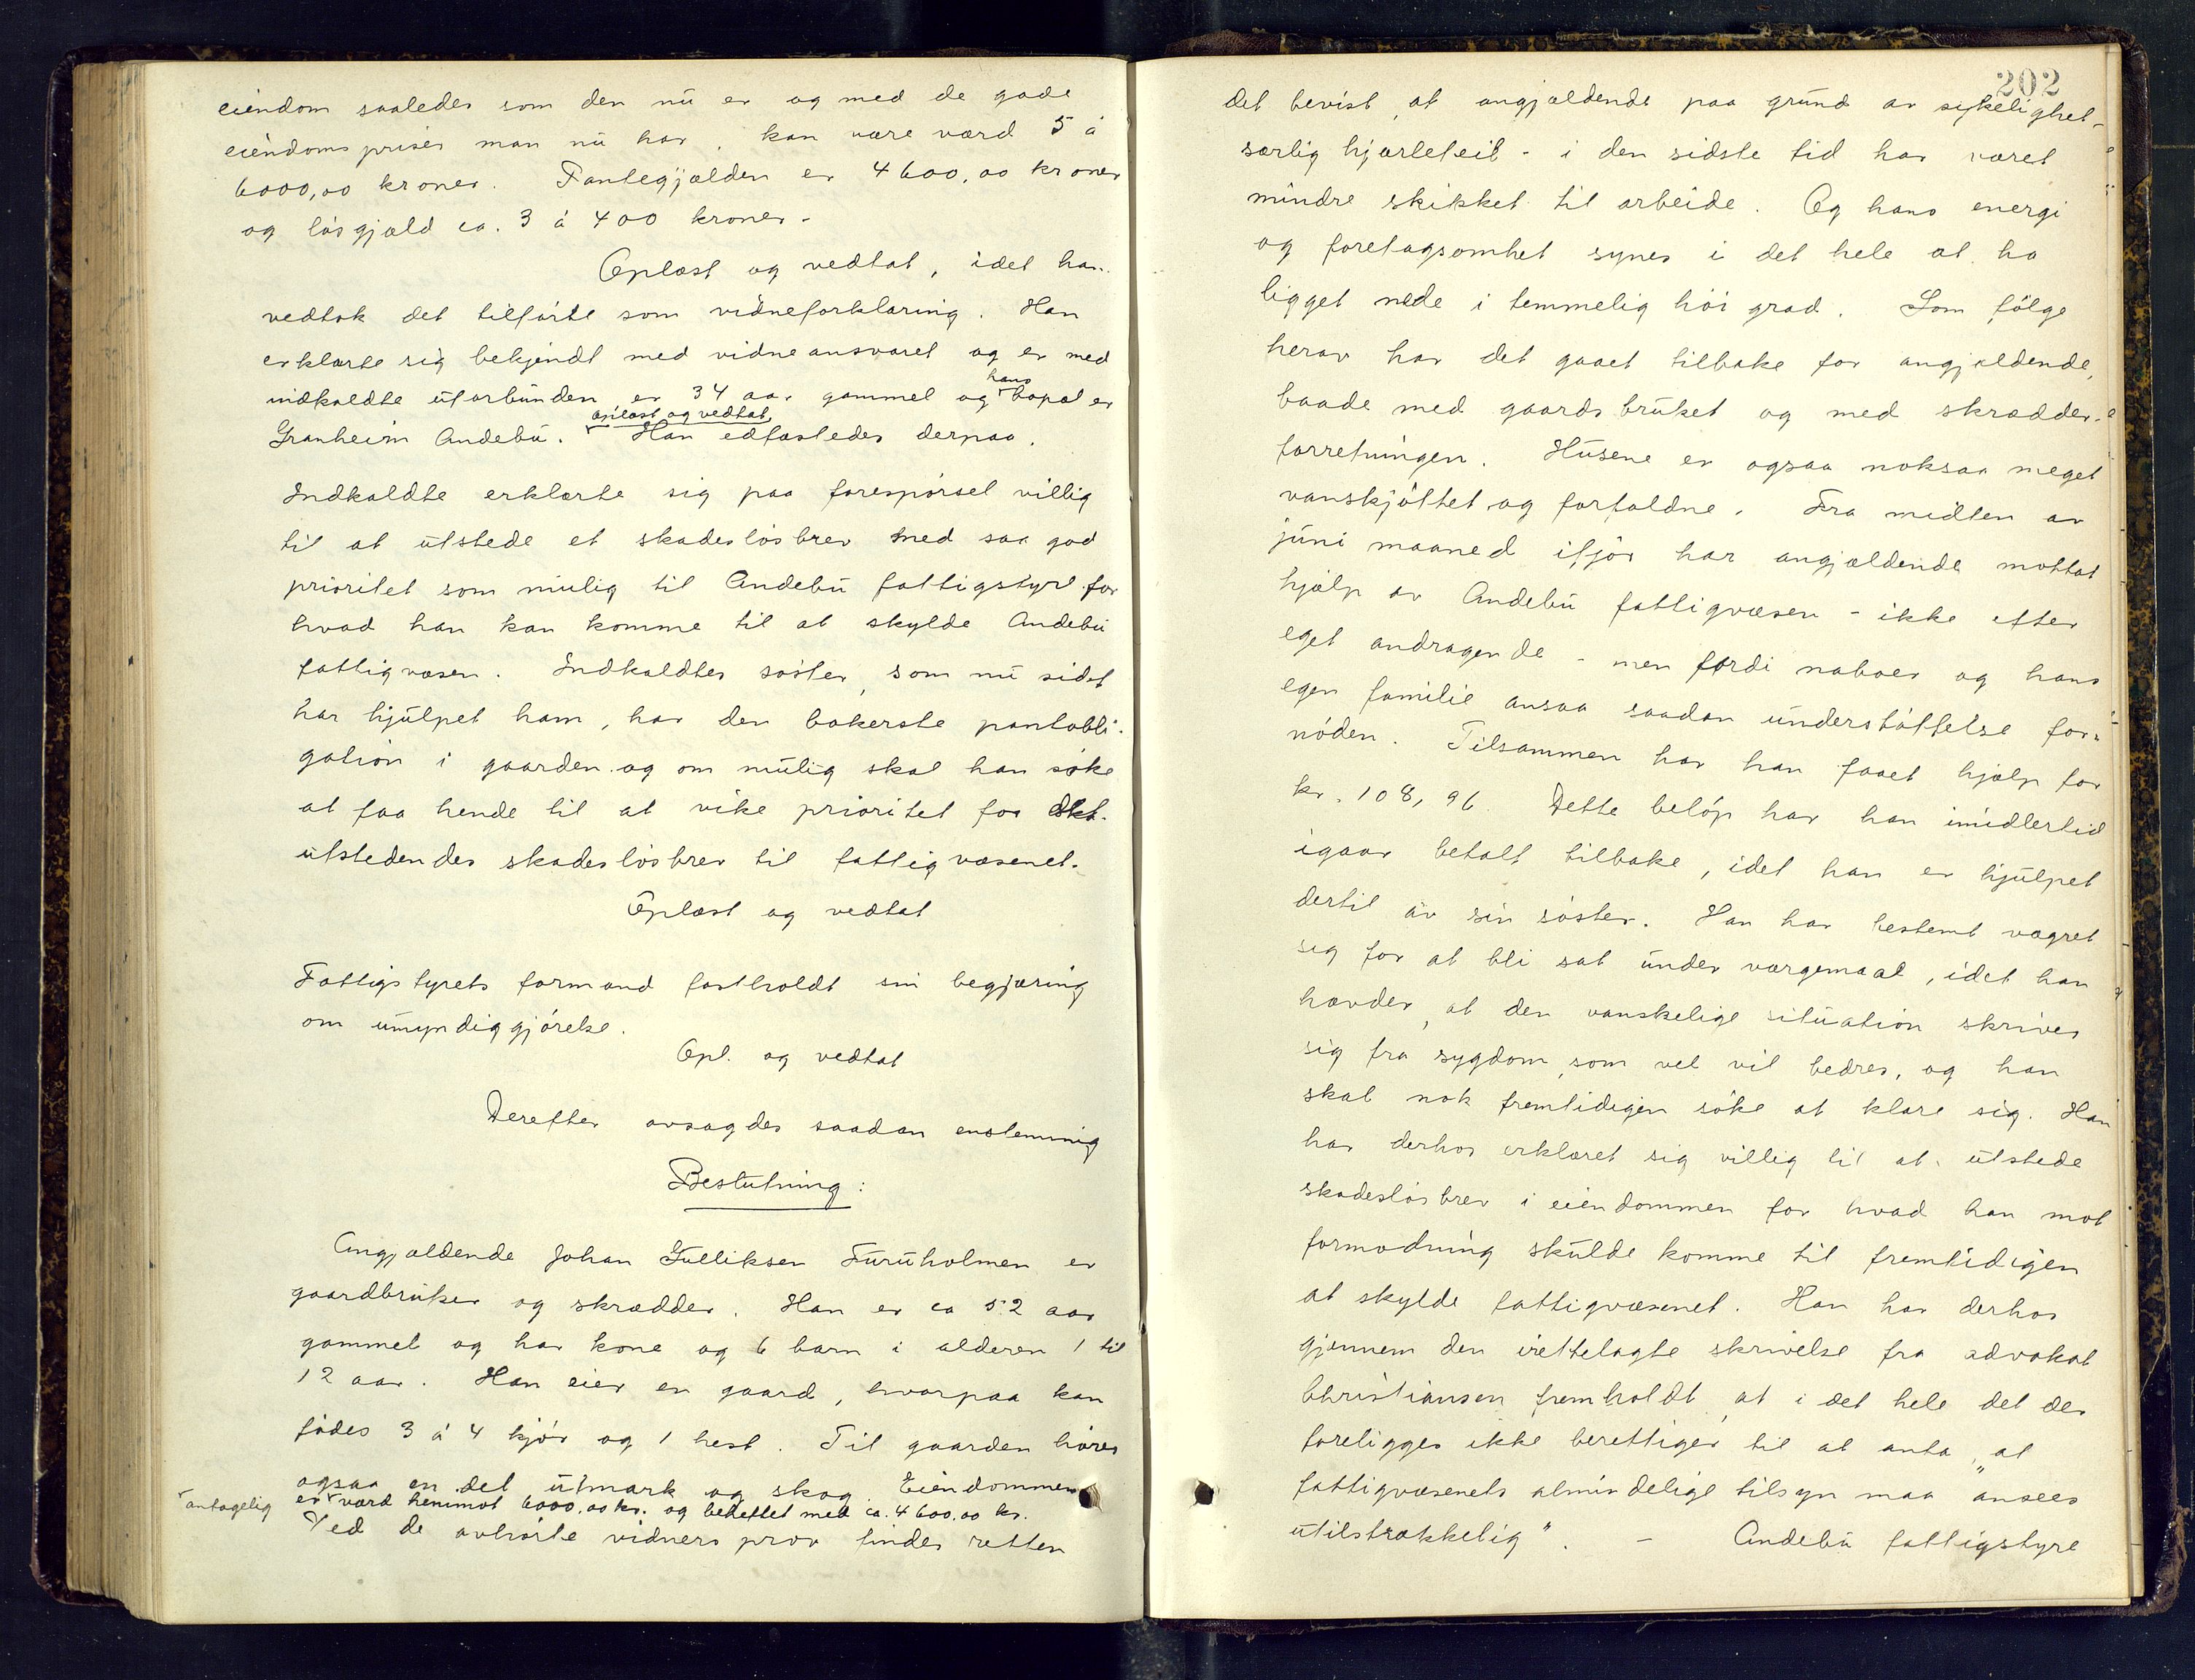 eiendom saaledes som den nu er og med de gode
eiendomspriser man nu har, kan være værd 5 à
6000,00 kroner. Pantegjælden er 4600,00 kroner
og løsgjæld ca. 3 à 400 kroner.
Oplæst og vedtat, idet han
vedtok det tilførte som vidneforklaring. Han
erklærte sig bekjendt med vidneansvaret og er med
indkaldte uforbunden er 34 aar gammel og hans bopæl er
Granheim Andebu. oplæst og vedtat. Han edfæstedes derpaa.
Indkaldte erklærte sig paa forespørsel villig
til at utstede et skadesløsbrev med saa god
prioritet som mulig til Andebu fattigstyre for
hvad han kan komme til at skylde Andebu
fattigvæsen. Indkaldtes søster, som nu sidst
har hjulpet ham, har den bakerste pantobli-
gation i gaarden og om mulig skal han søke
at faa hende til at vike prioritet for det
utstedendes skadesløsbrev til fattigvæsenet.
Oplæst og vedtat
Fattigstyrets formand fastholdt sin begjæring
om umyndiggjørelse.
Opl. og vedtat
Derefter avsagdes saadan enstemmig
Beslutning:
Angjældende Johan Gulliksen Furuholmen er
gaardbruker og skrædder. Han er ca 52 aar
gammel og har kone og 6 barn i alderen 1 til
12 aar. Han eier en gaard, hvorpaa kan
fødes 3 à 4 kjør og 1 hest. Til gaarden hører
ogsaa en del utmark og skog. Eiendommen
er antagelig værd henimot 6000,00 kr. og beheftet med ca. 4600,00 kr.
Ved de avhørte vidners prov findes retten
202
det bevist, at angjældende paa grund av sykelighet -
særlig hjertefeil - i den sidste tid har været
mindre skikket til arbeide. Og hans energi
og foretagsomhet synes i det hele at ha
ligget nede i temmelig höi grad. Som følge
herav har det gaaet tilbake for angjældende,
baade med gaardsbruket og med skrædder-
forretningen. Husene er ogsaa noksaa meget
vanskjøttet og forfaldne. Fra midten av
juni maaned ifjor har angjældende mottat
hjælp av Andebu fattigvæsen - ikke efter
eget andragende - men fordi naboer og hans
egen familie ansaa saadan understøttelse for-
nöden. Tilsammen har han faaet hjælp for
kr. 108,96. Dette beløp har han imidlertid
igaar betalt tilbake, idet han er hjulpet
dertil av sin søster. Han har bestemt vægret
sig for at bli sat under værgemaal, idet han
hævder, at den vanskelige situation skriver
sig fra sygdom, som vel vil bedres, og han
skal nok fremtidigen søke at klare sig. Han
har derhos erklæret sig villig til at utstede
skadesløsbrev i eiendommen for hvad han mot
formodning skulde komme til fremtidigen
at skylde fattigvæsenet. Han har derhos
gjennem den irettelagte skrivelse fra advokat
Christiansen fremholdt, at i det hele det der
foreligger ikke berettiger til at anta, at
fattigvæsenets almindelige tilsyn maa "ansees
utilstrækkelig". - Andebu fattigstyre